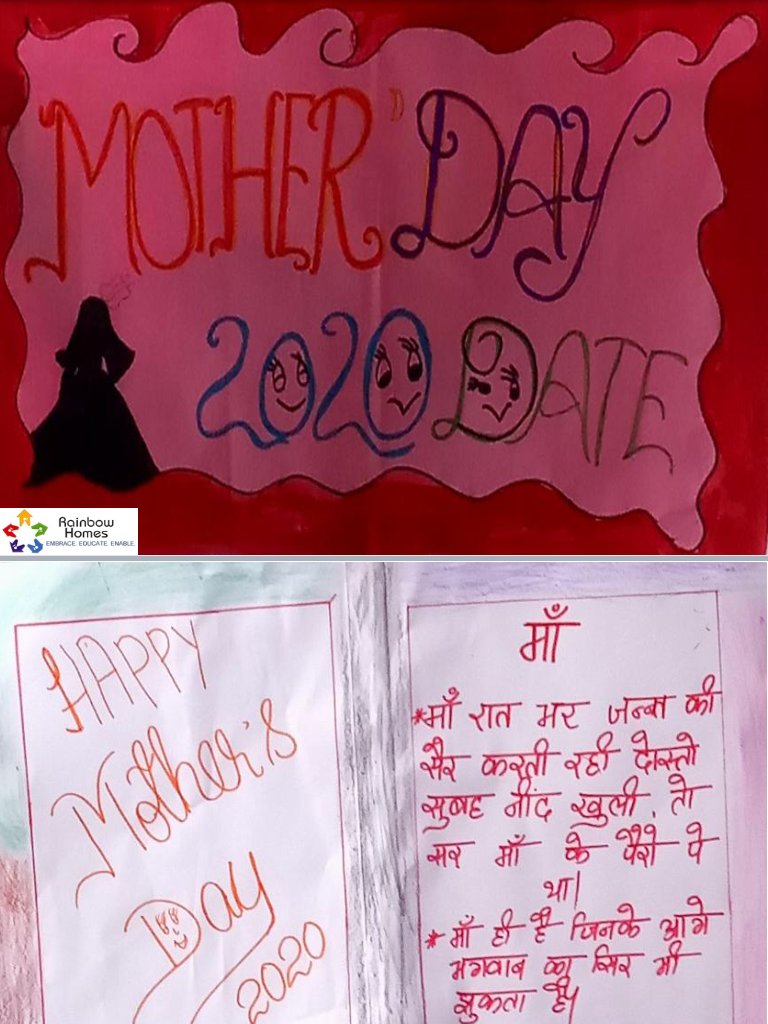 MOTHER'DAY
2020 DATE
Rainbow
Homes
EMBRACE. EDUCATE. ENABLE.
HAPPY
Mother's
Day
2020
माँ
*माँ रात भर जन्नत की
सैर करती रही दोस्तो
सुबह नींद खुली, तो
सर माँ के पैरो पे
था।
* माँ ही है जिनके आगे
भगवाब का सिर भी
झुकता है।